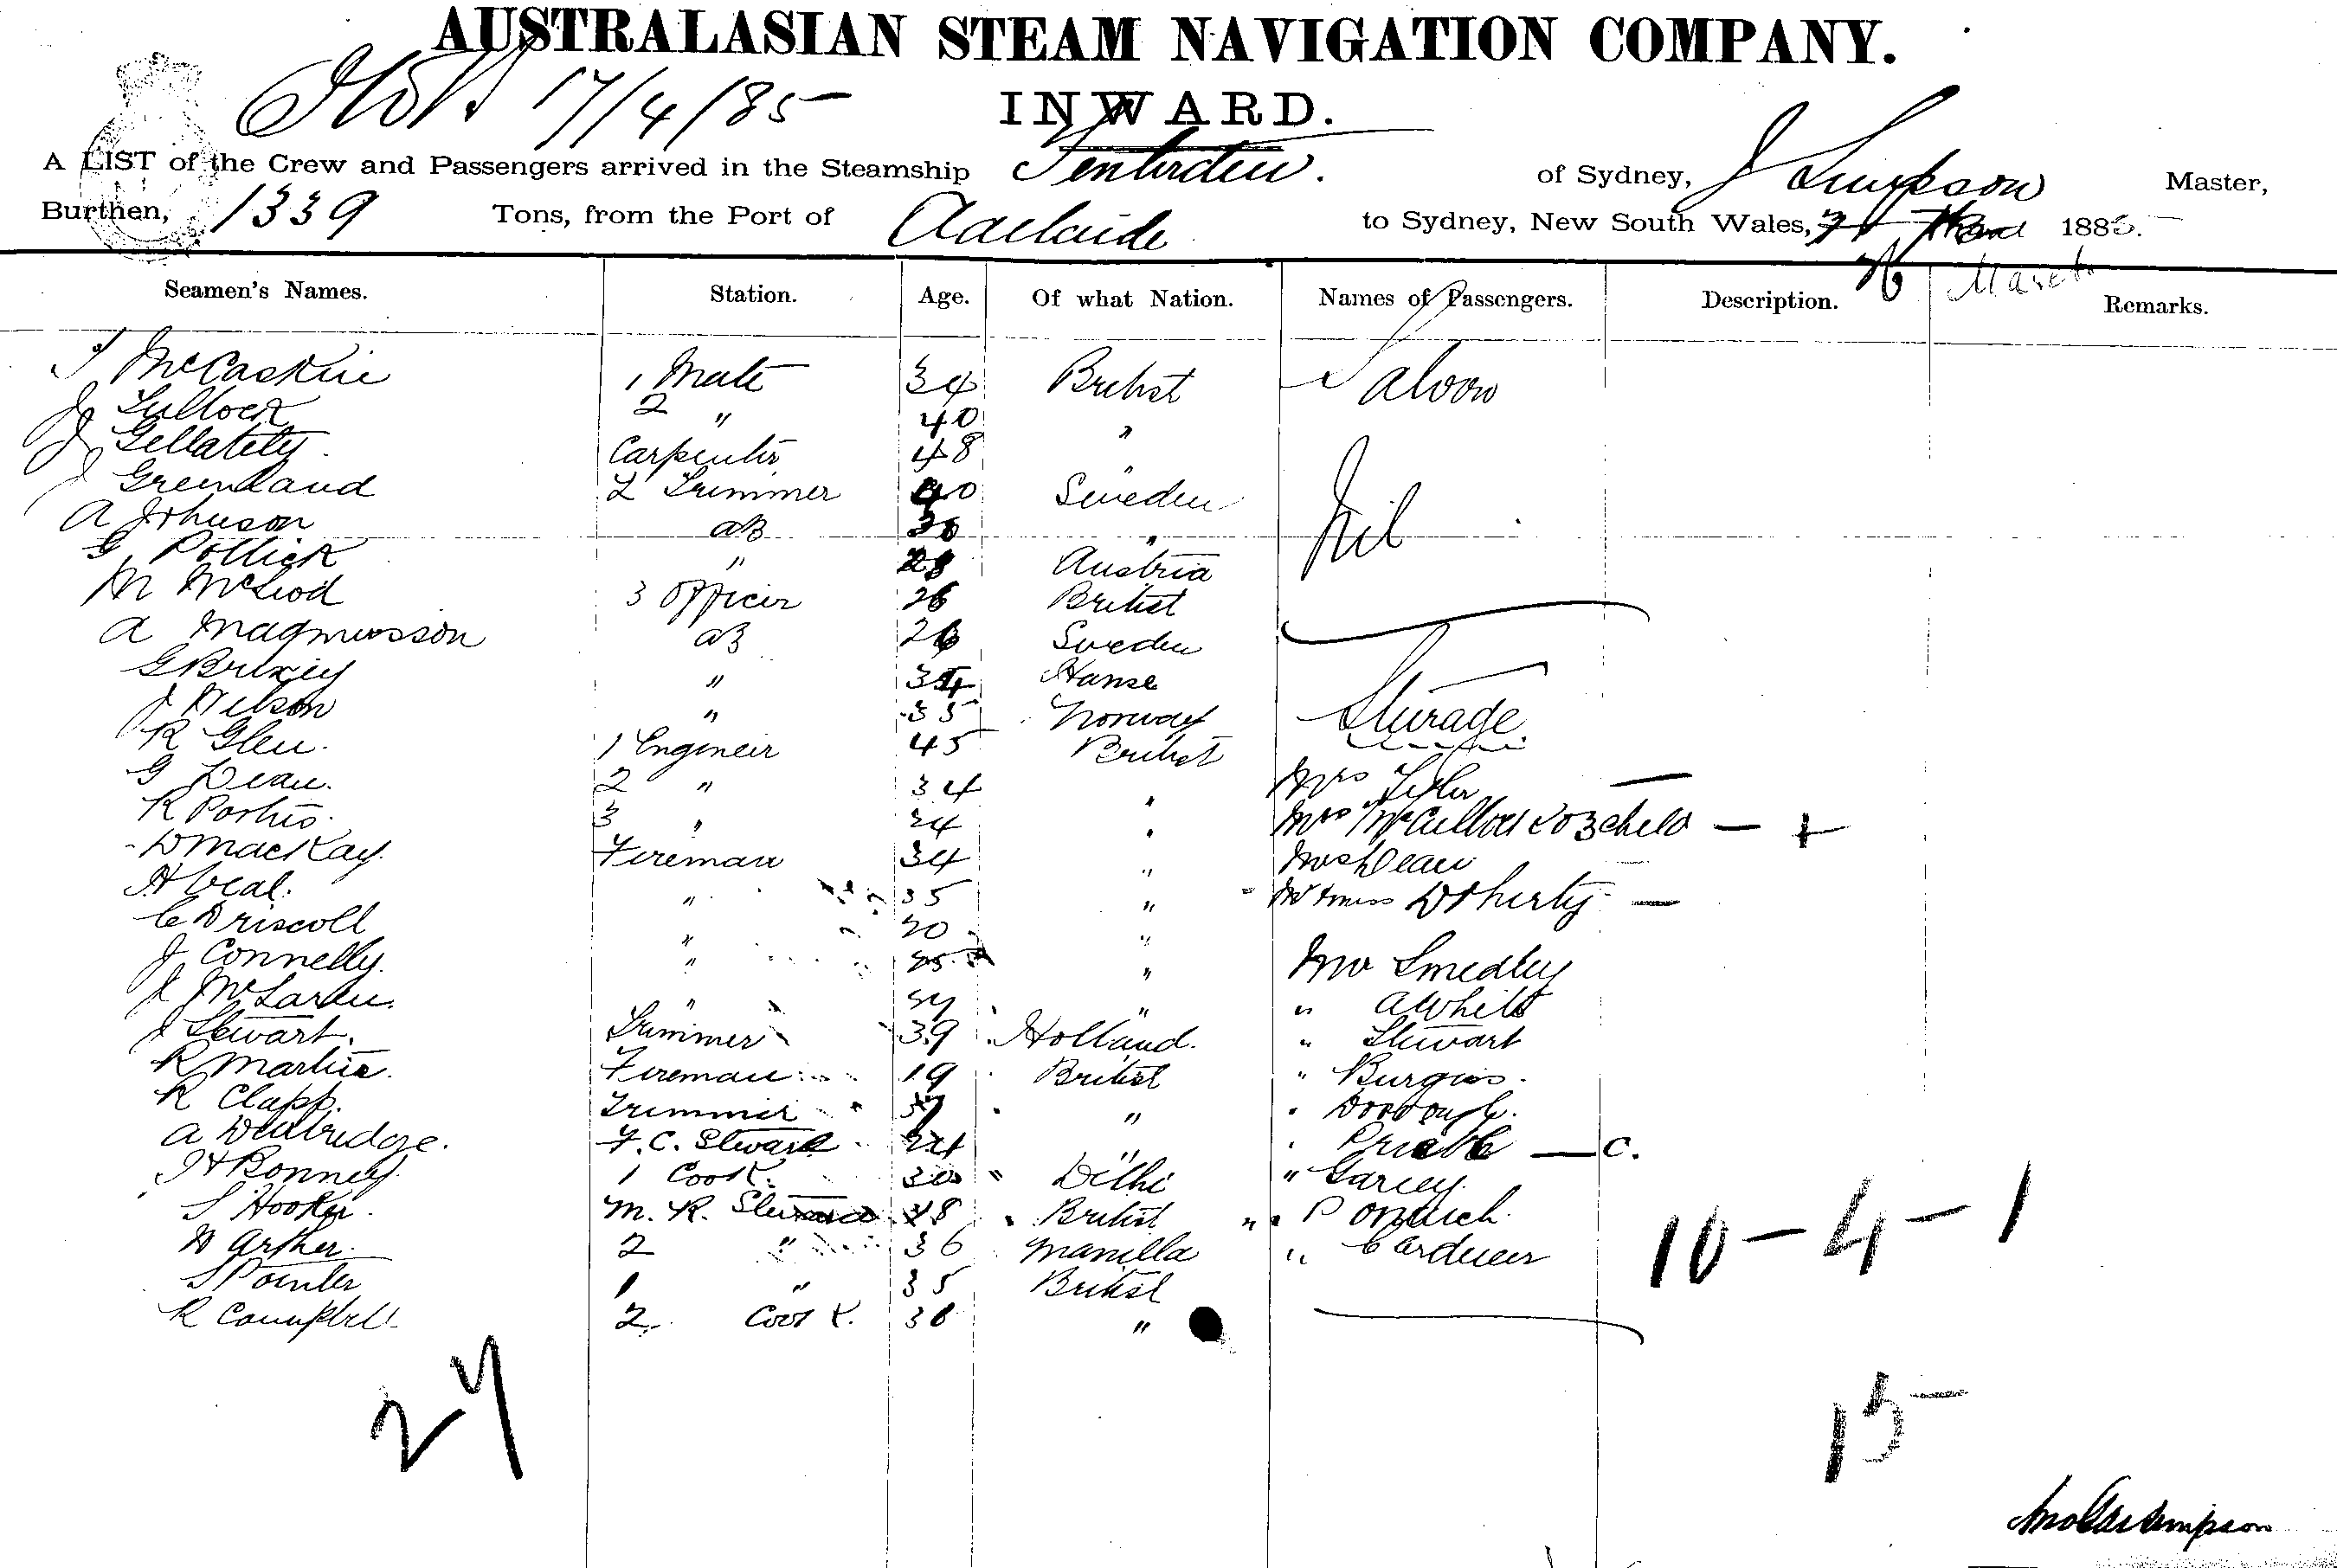 AUSTRALASIAN STEAM NAVIGATION COMPANY.
17/4/85
INWARD.
A LIST of the Crew and Passengers arrived in the Steamship Tenterden. of Sydney, J Simpson Master,
Burthen, 1339 Tons, from the Port of Adelaide to Sydney, New South Wales, 1885.
March
Seamen's Names. Station. Age. Of what Nation. Names of Passengers. Description. Remarks.
McCaskie 1 Mate 34 British Saloon
J Tullock 2 " 40 "
J Gellately Carpenter 48 "
J Greenland L Trimmer 40 Sweden Nil
A Johnson AB 30 "
G Pollick " 28 Austria
M McLeod 3 Officer 26 British
A Magnusson AB 26 Sweden
G Brixey " 34 Hanse
J Nelson " 35 Norway Sturage
R Glen. 1 Engineer 45 British
G Dean. 2 " 34 " Mrs Tyler —
R Portus. 3 " 24 " Mrs McCulloch & 3 child — +
D MacKay. Fireman 34 " Dean
H Veal. " 35 " Mr & miss Doherty —
C Driscoll " 20 "
J Connelly. " 25 " Mr Smedley
J McLaren. " " " A White
J Stewart. Trimmer 39 Holland. " Stewart
R Martin. Fireman 19 British " Burgiss.
R Clapp. Trimmer "
A F. C. Steward 24 " — C.
H Bonney. 1 Cook. 30 " Delhi " Garcey.
S Hooker. M. R. Steward 28 British "
D Arther. 2 " 36 Manilla " Carducer
S Pointer 1 " 35 British 10 - 4 - 1
R Campbell 2 Cook. 36 "
27
15